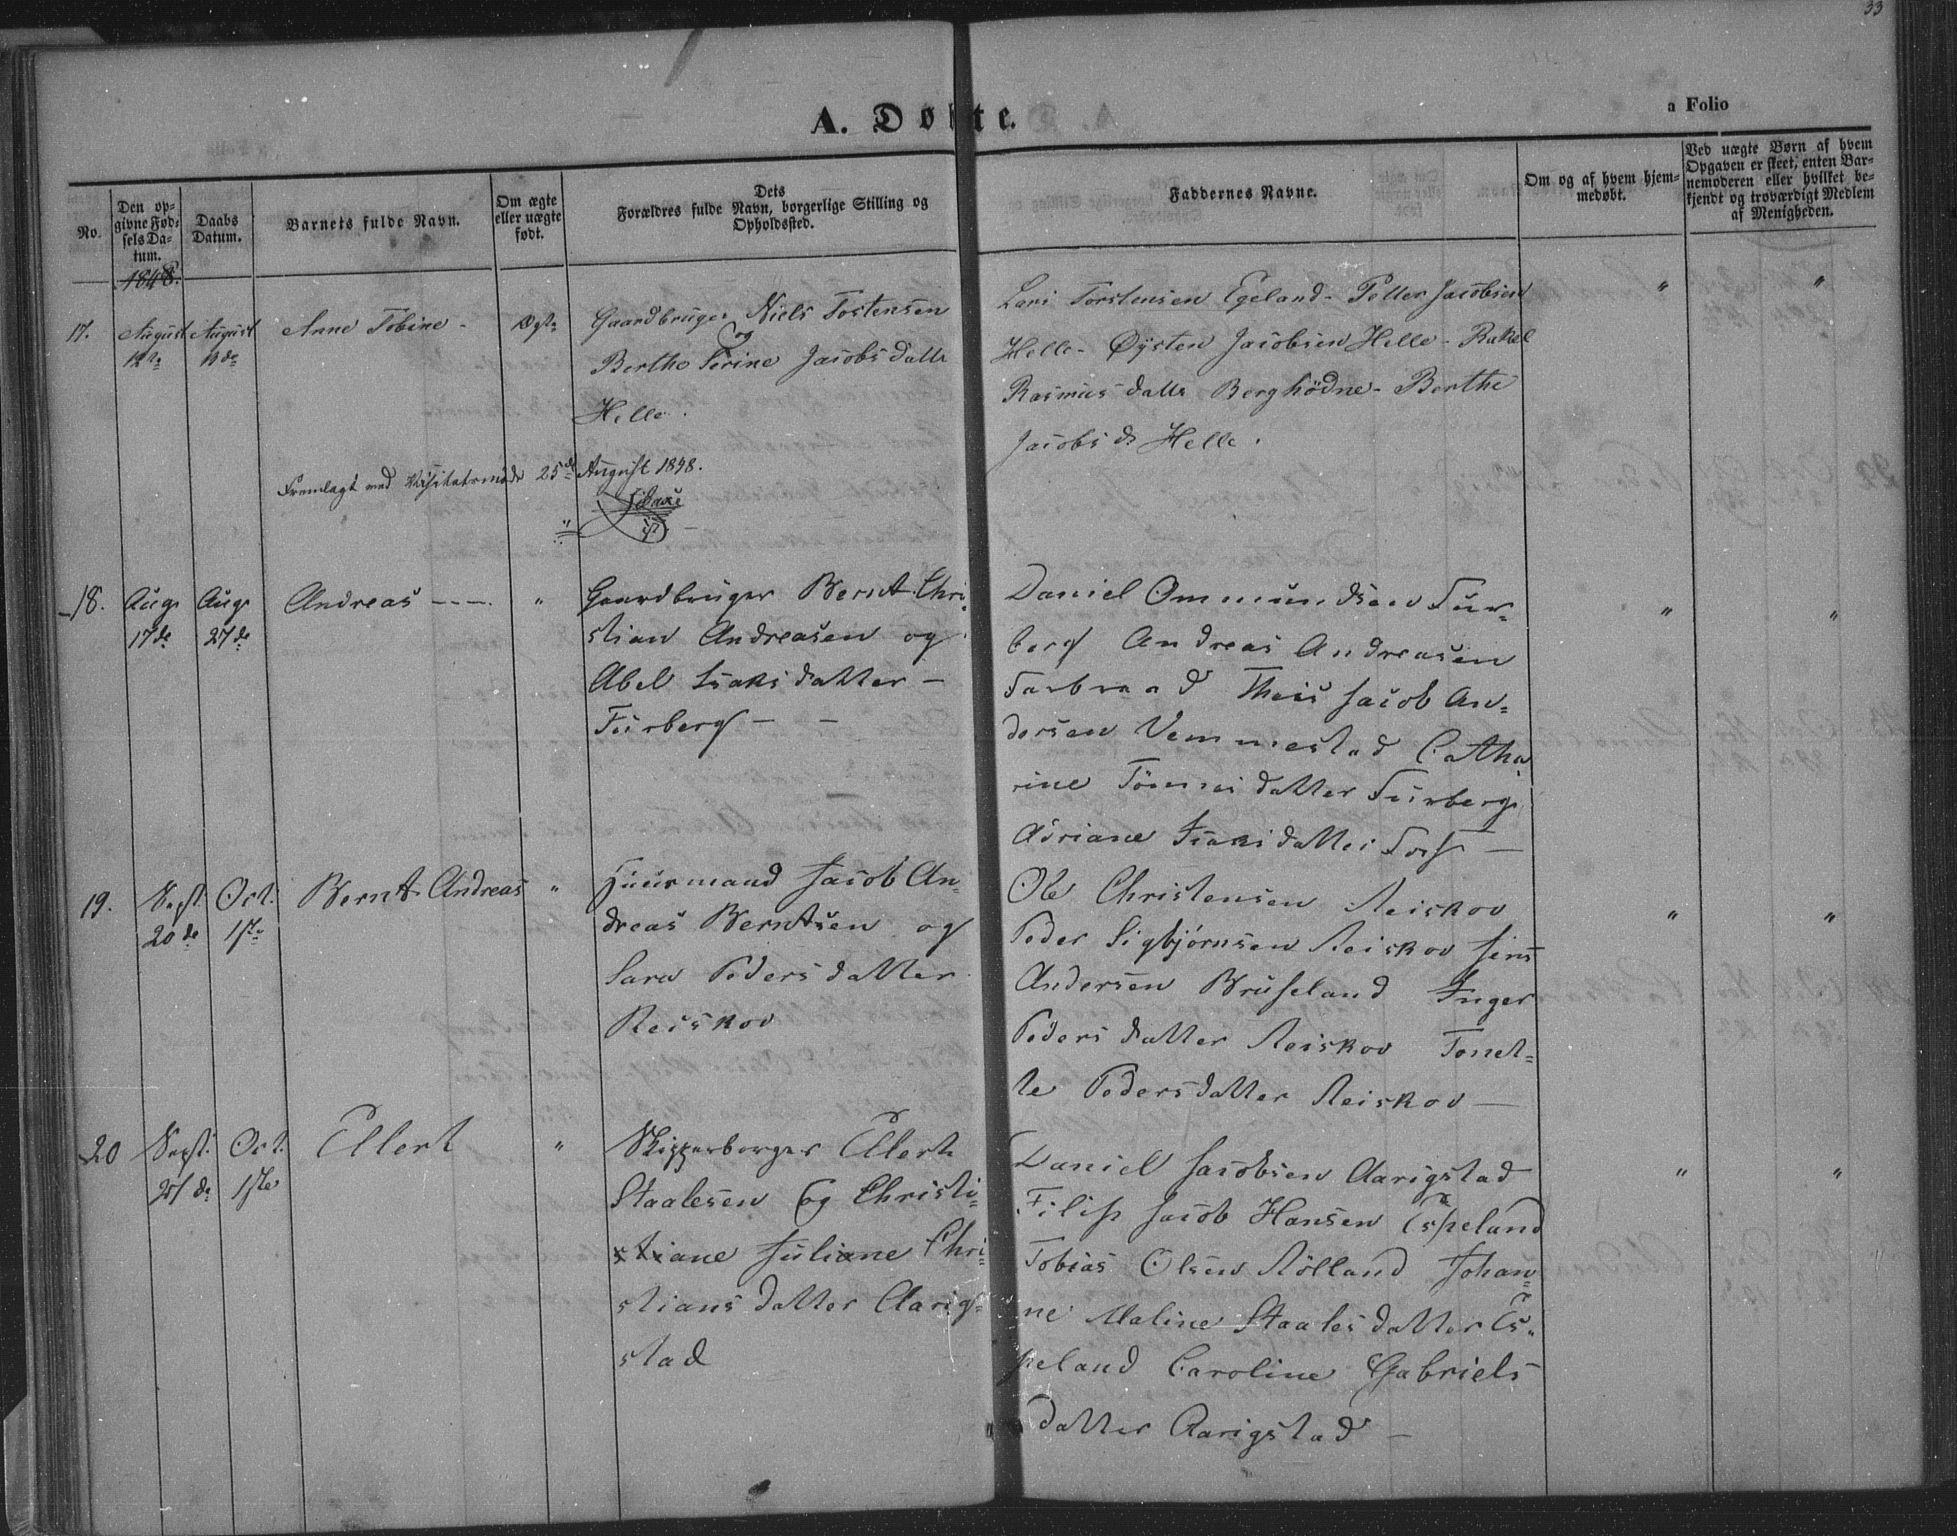 33
A. Døbte.
a Folio
No.
Den op-
givne Fød-
sels Da-
tum.
Daabs
Datum.
Barnets fulde Navn.
Om ægte
eller uægte
født.
Dets
Forældres fulde Navn, borgerlige Stilling og
Opholdssted.
Faddernes Navne.
Om og af hvem hjem-
medøbt.
Ved uægte Børn af hvem
Opgaven er skeet, enten Bar-
nemoderen eller hvilket be-
kjendt og troværdigt Medlem
af Menigheden.
1848.
17. August August Anne Tobine - Ægte Gaardbruger Niels Tostensen
og
Berthe Serine Jacobsdatter
Helle.
Torstensen Egeland - Petter Jacobsen
Helle - Øysten Jacobsen Helle - Rakel
Rasmusdatter Berghödne - Berthe
Jacobs dr Helle.
" "
Fremlagt ved Visitatsmøde 25de August 1848.
18. Aug. Aug. Andreas - - - . " Gaardbruger Bernt Chri-
17de 27de stian Andreasen og
Abel Isaksdatter -
Furberg - -
Daniel Ommundsen Fur-
berg Andreas Andreasen
Theis Jacob An-
dersen Vemmestad Catha
rine Tönnesdatter Furberg
Adriane Isaksdatter
" "
19. Sept. Oct. Bernt Andreas " Huusmand Jacob An-
20de 1ste dreas Berntsen og
Sara Pedersdatter
Reiskov
Ole Christensen Reiskov
Peder Sigbjørnsen Reiskov Jens
Andersen Bruseland Inger
Pedersdatter Reiskov Tonet-
te Pedersdatter Reiskov -
" "
20 Sept. Oct. Ellert " Skipperborger Ellert
1ste Staalesen Og Christi-
stiane Juliane Chri-
stiansdatter Aarig-
stad
Daniel Jacobsen Aarigstad
Filip Jacob Hansen Espeland
Tobias Olsen Rölland Johan-
ne Maline Staalesdatter Es-
peland Caroline Gabriels
datter Aarigstad -
" "